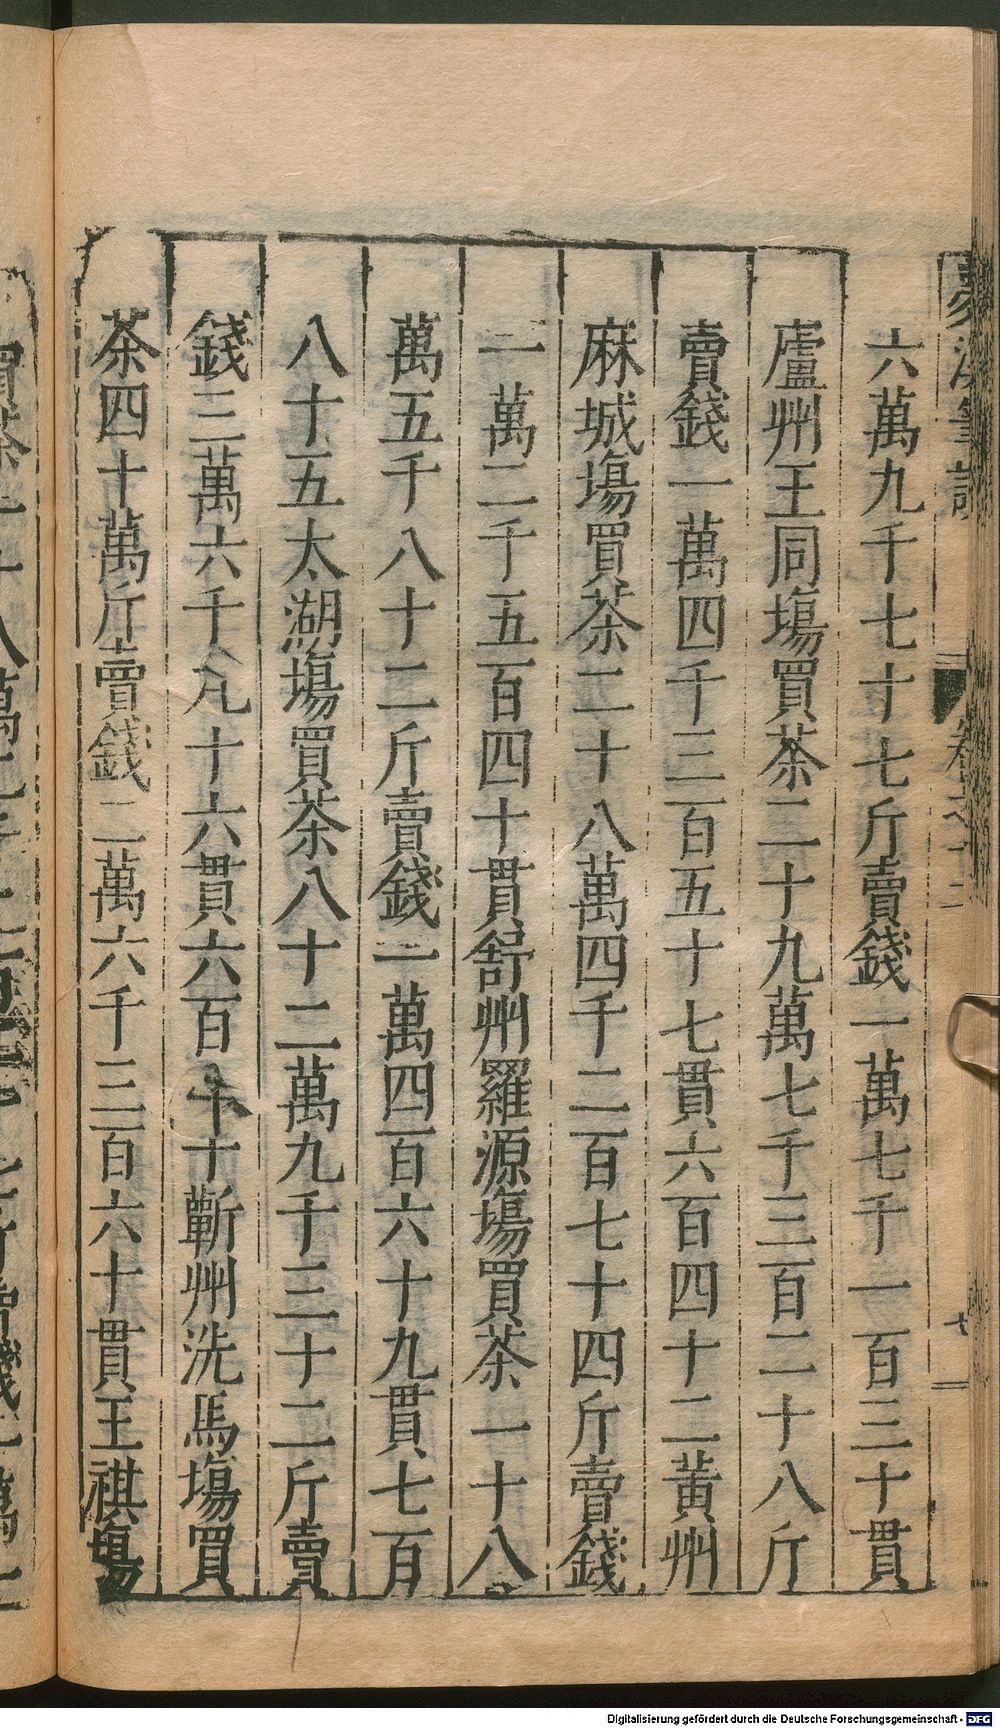 夢溪筆談 卷之十二 七
六萬九千七十七斤賣錢一萬七千一百三十貫
廬州王同塲買茶二十九萬七千三百二十八斤
賣錢一萬四千三百五十七貫六百四十二黃州
麻城塲買茶二十八萬四千二百七十四斤賣錢
一萬二千五百四十貫舒州羅源塲買茶一十八
萬五千八十二斤賣錢一萬四百六十九貫七百
八十五太湖塲買茶八十二萬九千三十二斤賣
錢三萬六千九十六貫六百八十蘄州洗馬塲買
茶四十萬斤賣錢二萬六千三百六十貫王祺塲
Digitalisierung gefördert durch die Deutsche Forschungsgemeinschaft - DFG